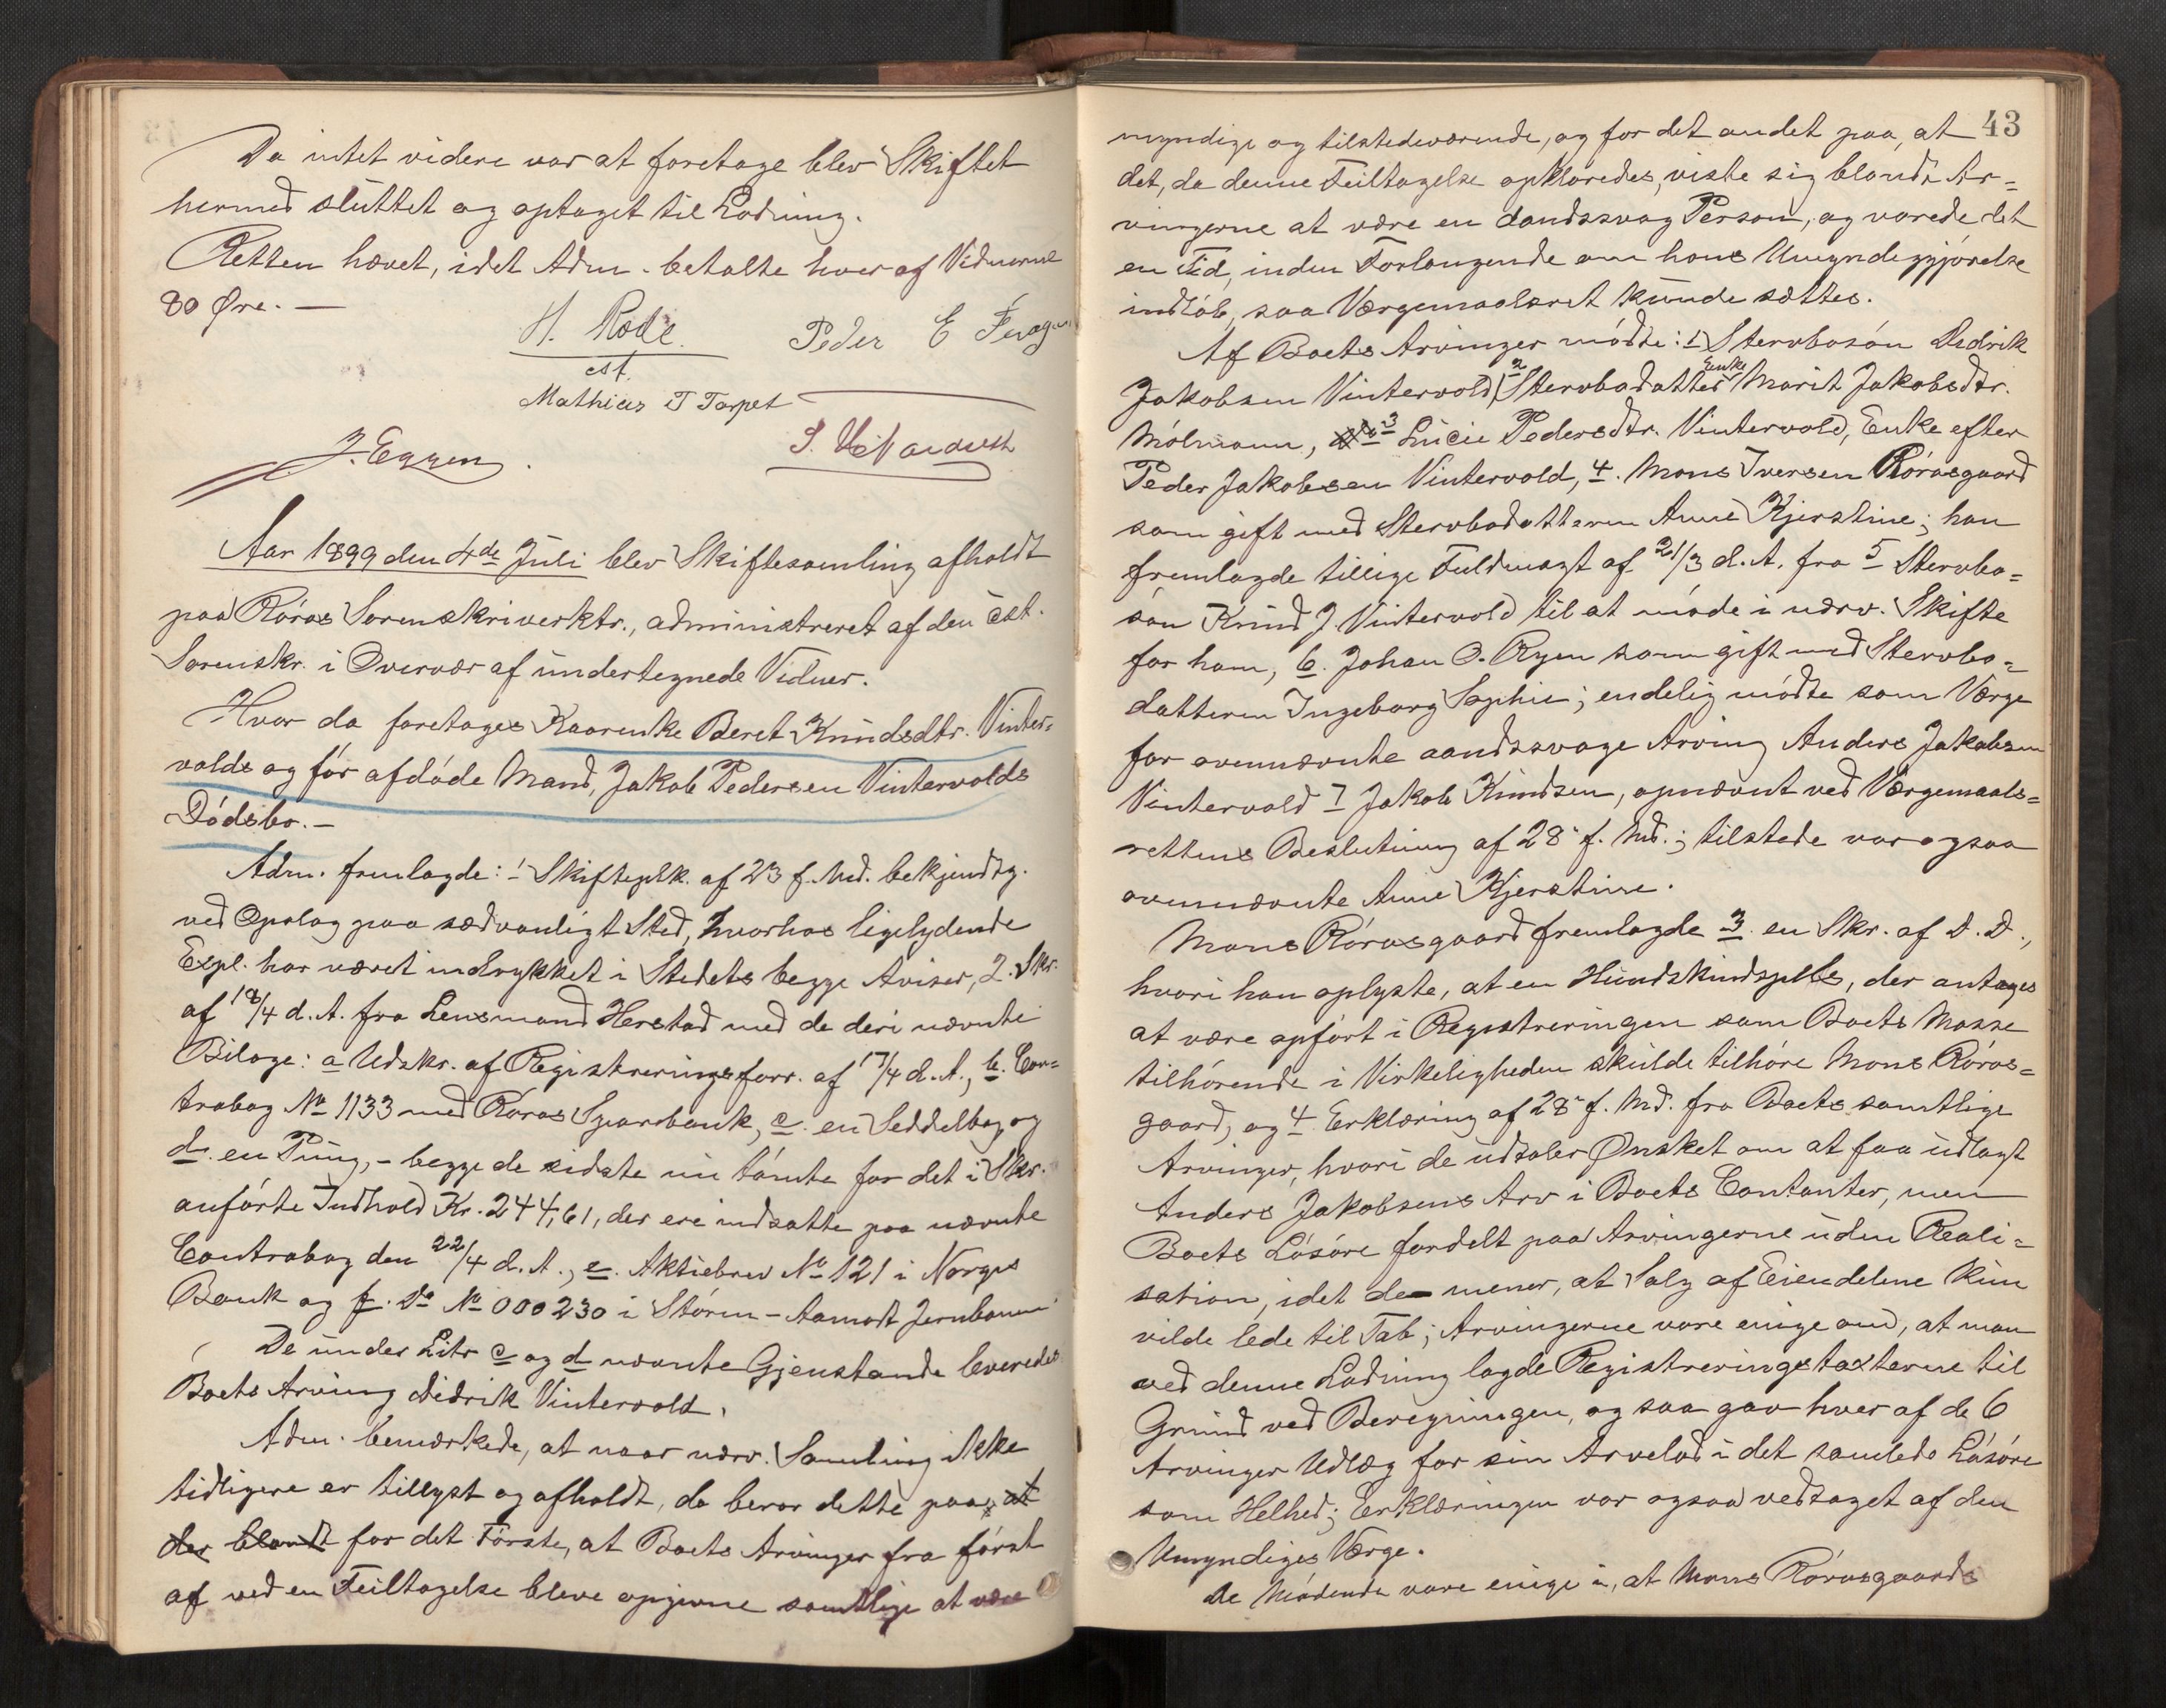 Da intet videre var at foretage blev Skiftet
hermed sluttet og optaget til Lodning.
Retten hævet, idet Adm. betalte hver af Vidnerne
80 Øre. —
H. Rode
est.
Peder E
Mathias T Torpet
J. Eggen
Aar 1899 den 4de Juli blev Skiftesamling afholdt
paa Røros Sorenskriverktr., administreret af den est.
Sorenskr. i Overvær af undertegnede Vidner.
Hvor da foretages Kaarenke Beret Knudsdtr. Vinter-
volds og før afdøde Mand, Jakob Pedersen Vintervolds
Dødsbo. —
Adm. fremlagde: 1 Skifteplk. af 23 f. Md. bekjendtg.
ved Opslag paa sædvanligt Sted, hvorhos ligelydende
Expl. har været indrykket i Stedets begge Aviser, 2. Skr.
af 18/4 d. A. fra Lensmand Herstad med de deri nævnte
Bilage: a Udskr. af Registreringsforr. af 17/4 d. A., b. Con-
trabog No 1133 med Røros Sparebank, c. en Seddelbog og
d. en Pung, - begge de sidste nu tømte for det i Skr.
anførte Indhold Kr. 244,61, der ere indsatte paa nævnte
Contrabog den 22/4 d. A., e. Aktiebrev No 121 i Norges
Bank og f. Do No 000230 i Støren-Aamodt Jernbane
De under Litr c og d nævnte Gjenstande leveredes
Boets Arving Didrik Vintervold.
Adm. bemærkede, at naar nærv. Samling ikke
tidligere er tillyst og afholdt, da beror dette paa, at
der blandt for det Første, at Boets Arvinger fra først
af ved en Feiltagelse bleve opgivne samtlige at være
43
myndige og tilstedeværende, og for det andet paa, at
det, da denne Feiltagelse opklaredes, viste sig blandt Ar-
vingerne at være en aandssvag Person, og varede det
en Tid, inden Forlangende om hans Umyndiggjørelse
indløb, saa Værgemaalsret kunde sættes.
Af Boets Arvinger mødte: 1 Stervbosøn Didrik
Jakobsen Vintervold, 2 Stervbodatter Enke Marit Jakobsdtr.
Mølmann, 3 Lucie Pedersdtr. Vintervold, Enke efter
Peder Jakobsen Vintervold, 4. Mons Iversen Rørosgaard
som gift med Stervbodatteren Anne Kjerstine; han
fremlagde tillige Fuldmagt af 21/3 d. A. fra 5 Stervbo-
søn Knud J. Vintervold til at møde i nærv. Skifte
for ham, 6. Johan O. Ryen som gift med Stervbo-
datteren Ingeborg Sophie; endelig mødte som Værge
for ovennævnte aandssvage Arving Anders Jakobsen
Vintervold 7 Jakob Knudsen, opnævnt ved Værgemaals-
rettens Beslutning af 28 f. Md.; tilstede var ogsaa
ovennævnte Anne Kjerstine.
Mons Rørosgaard fremlagde 3. en Skr. af D. D.,
hvori han oplyste, at en Hundskindspels, der antages
at være opført i Registreringen som Boets Masse
tilhørende i Virkeligheden skulde tilhøre Mons Røros-
gaard, og 4 Erklæring af 28 f. Md. fra Boets samtlige
Arvinger, hvori de udtaler Ønsket om at faa udlagt
Anders Jakobsens Arv i Boets Contanter, men
Boets Løsøre fordelt paa Arvingerne uden Reali-
sation, idet de mener, at Salg af Eiendelene kun
vilde lede til Tab; Arvingerne vare enige om, at man
ved denne Lodning lagde Registreringstaxterne til
Grund ved Beregningen, og saa gav hver af de 6
Arvinger Udlæg for sin Arvelod i det samlede Løsøre
som Helhed; Erklæringen var ogsaa vedtaget af den
Umyndiges Værge.
De Mødende vare enige i, at Mons Rørosgaards